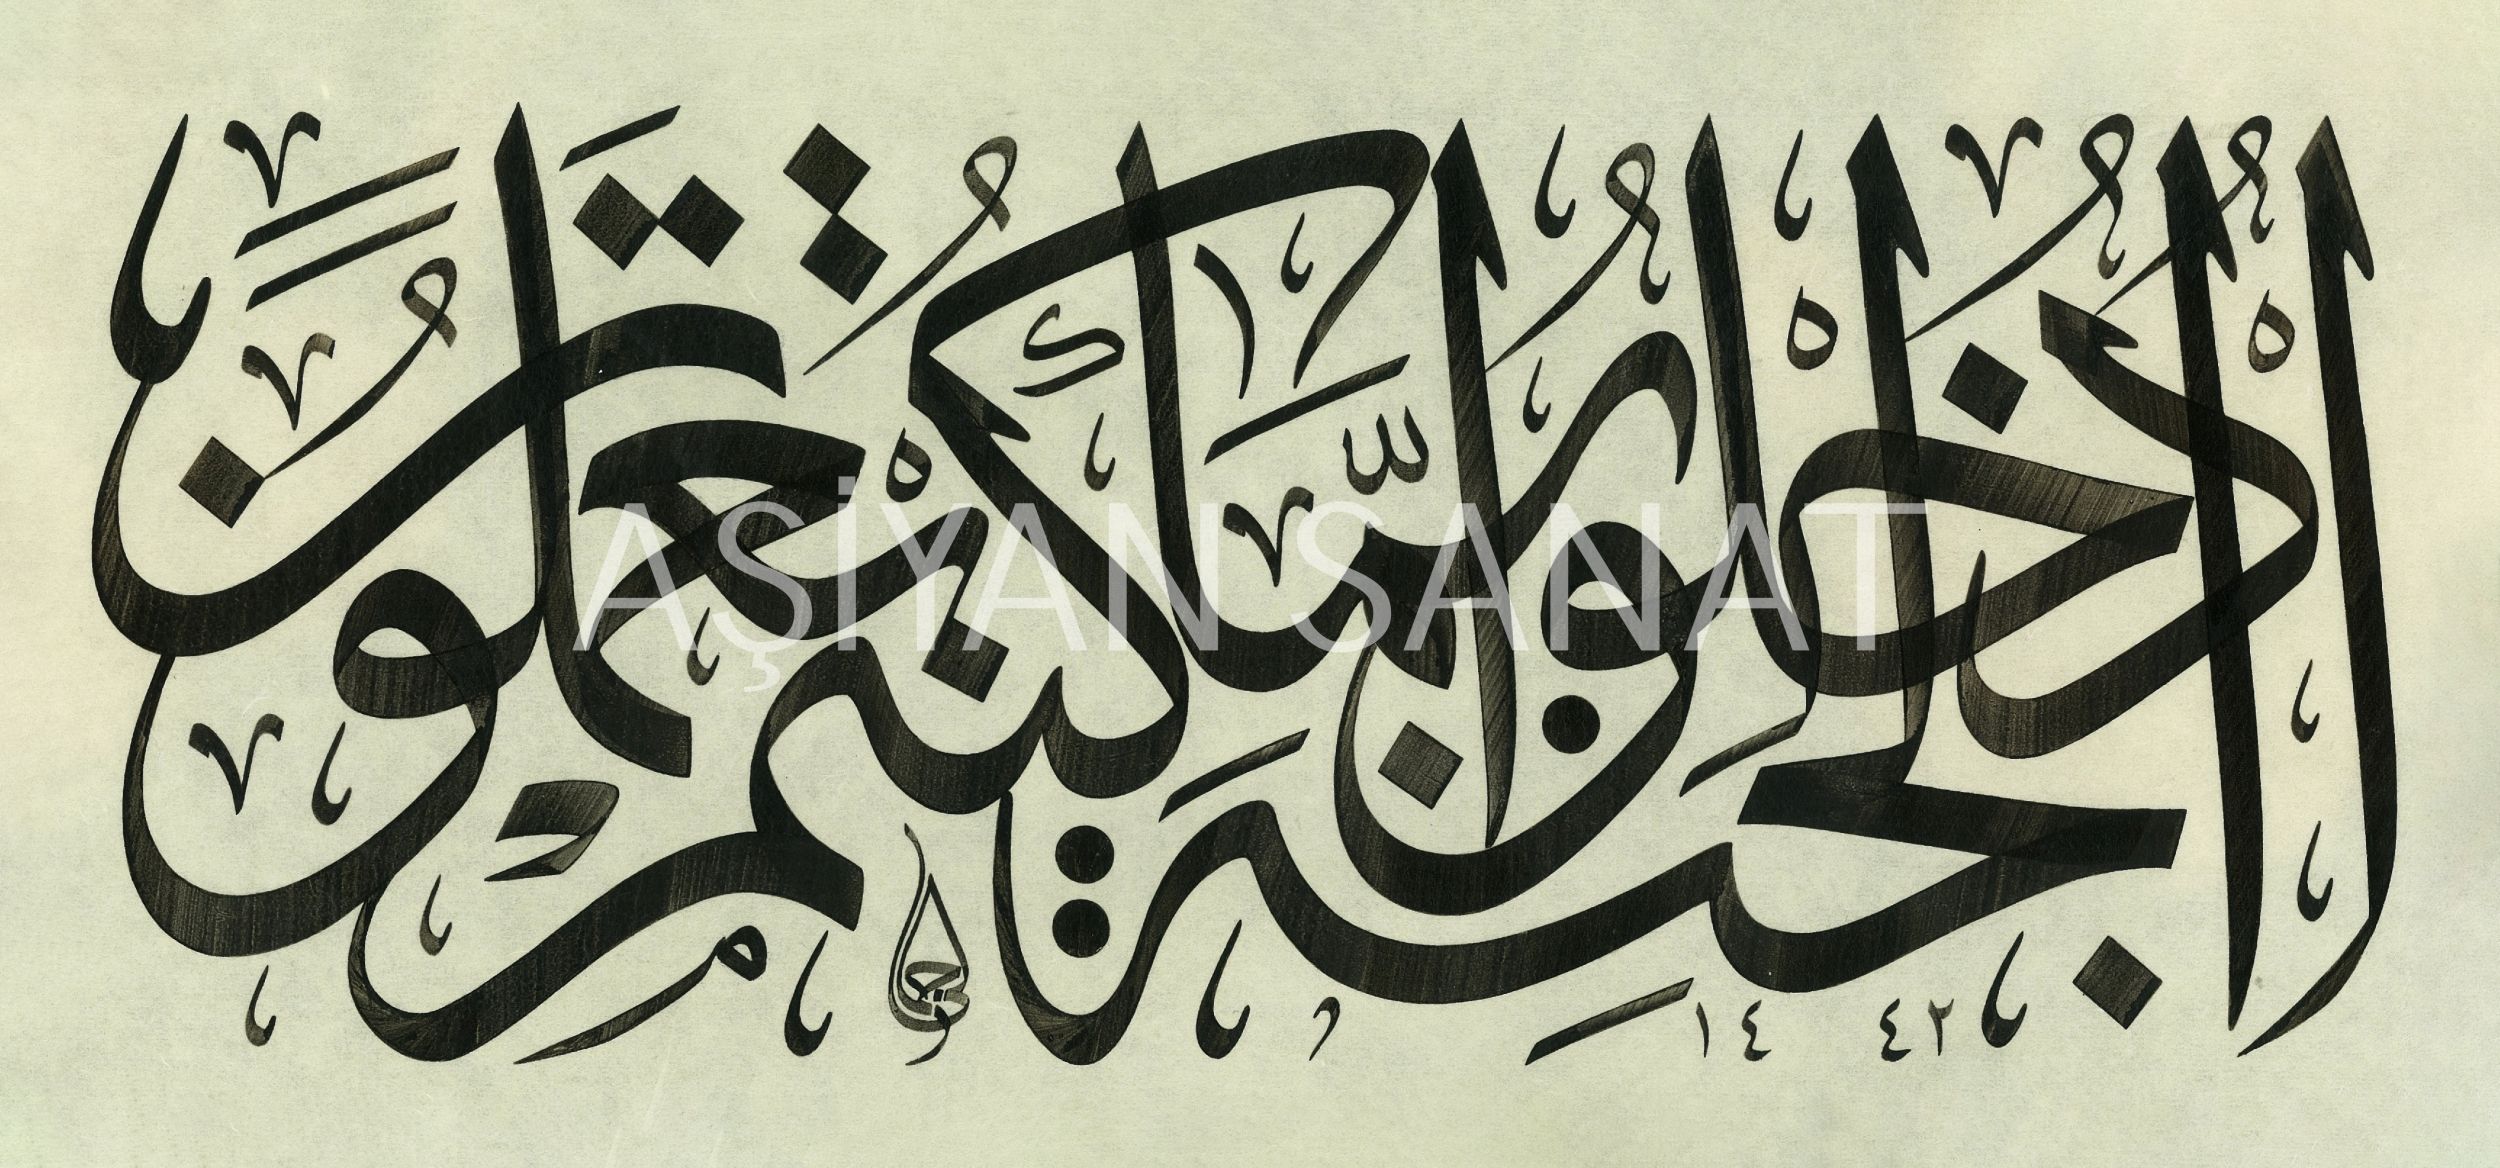 ادْخُلُوا الْجَنَّةَ بِمَا كُنْتُمْ تَعْمَلُونَ
AŞİYAN SANAT
١٤٤٢